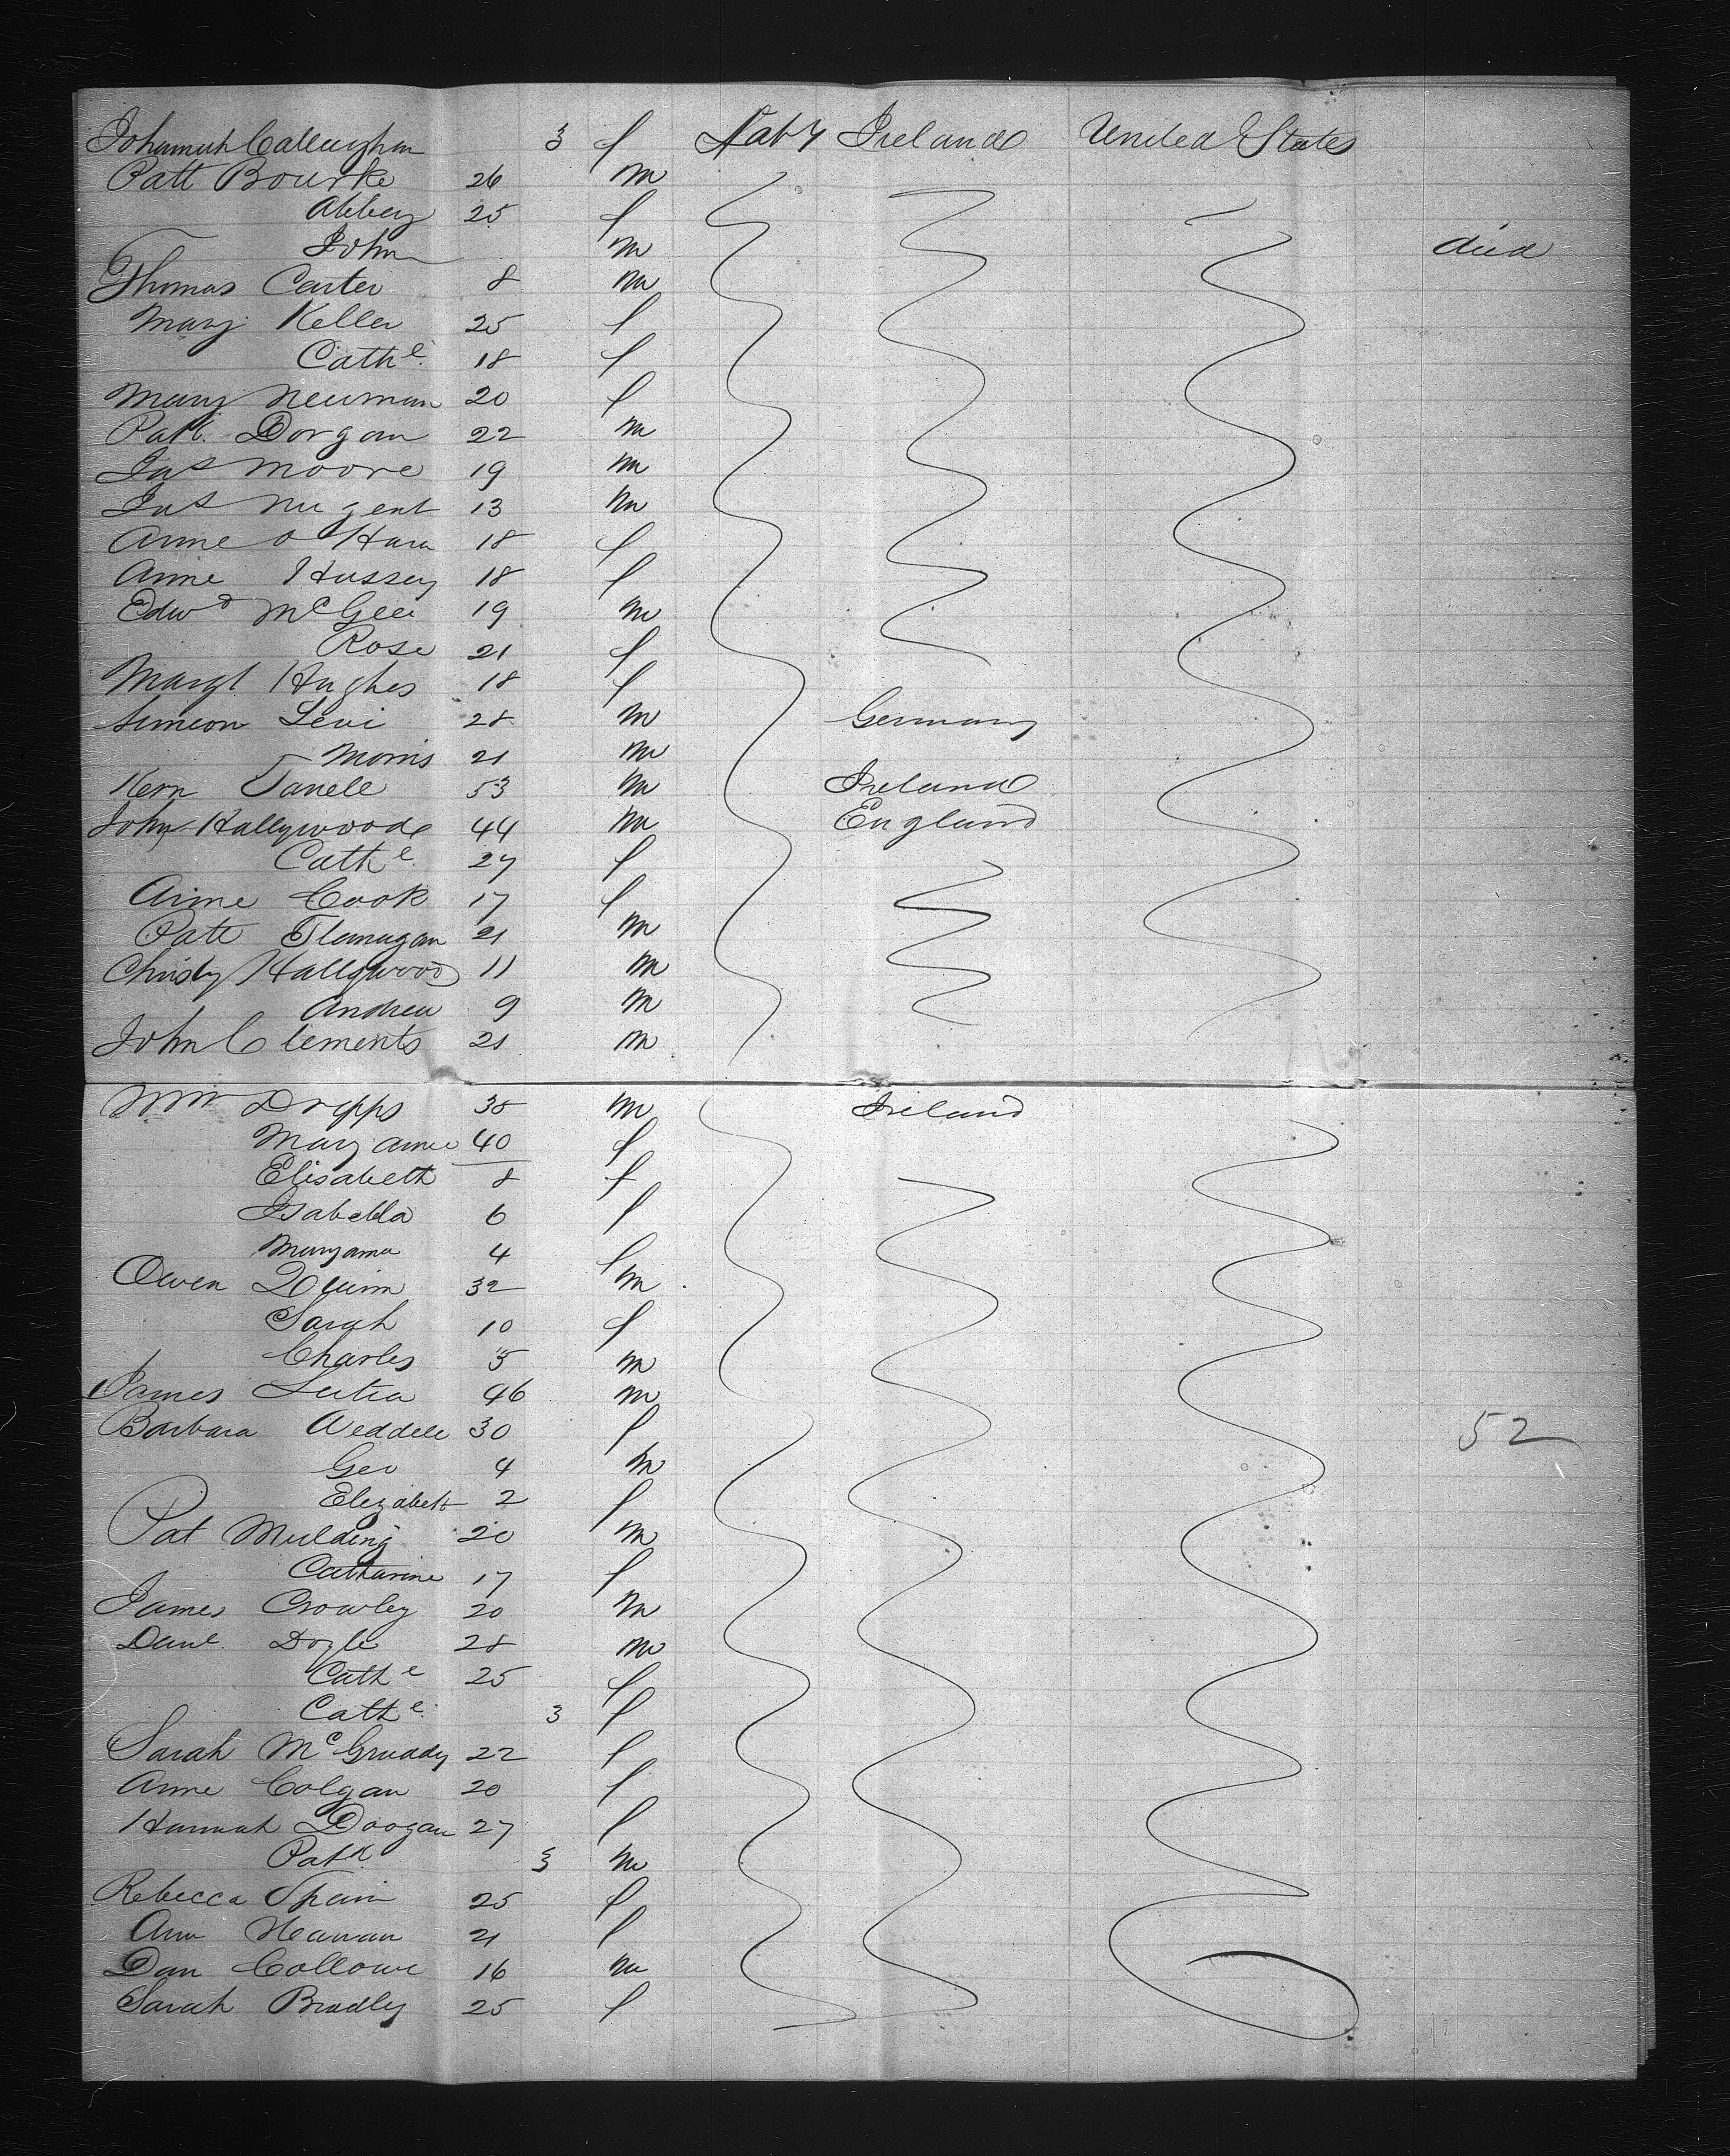 Johannah Callaghan 3 f Laby Ireland United States
Patt Bourke 26 m
Abbey 25 f
John m died
Thomas Carter 8 m
Mary Keller 25 f
Cathe 18 f
Mary Neuman 20 f
Patt. Dorgan 22 m
Jas Moore 19 m
Jas Nugent 13 m
Anne O Hara 18 f
Anne Hussey 18 f
Edwd McGee 19 m
Rose 21 f
Margt Hughes 18 f
Simeon Levi 28 m Germany
Morris 21 m
Kern 53 m Ireland
John Hallywood 44 m England
Cathe 27 f
Anne Cook 17 f
Patt Flanagan 21 m
Christy Hallywood 11 m
Andrew 9 m
John Clements 21 m
Wm Dripps 38 m Ireland
Mary anne 40 f
Elisabeth 8 f
Isabella 6 f
Maryanna 4 f
Owen Quinn 32 m
Sarah 10 f
Charles 5 m
James 46 m
Barbara Weddell 30 f 52
Geo 4 m
Elizabeth 2 f
Pat Mulding 20 m
Catharine 17 f
James Crowley 20 m
Danl Doyle 28 m
Cathe 25 f
Cathe 3 f
Sarah McGruddy 22 f
Anne Colgan 20 f
Hannah Doogan 27 f
Patk 3 m
Rebecca Spain 25 f
Ann Heanan 21 f
Dan 16 m
Sarah Bradley 25 f